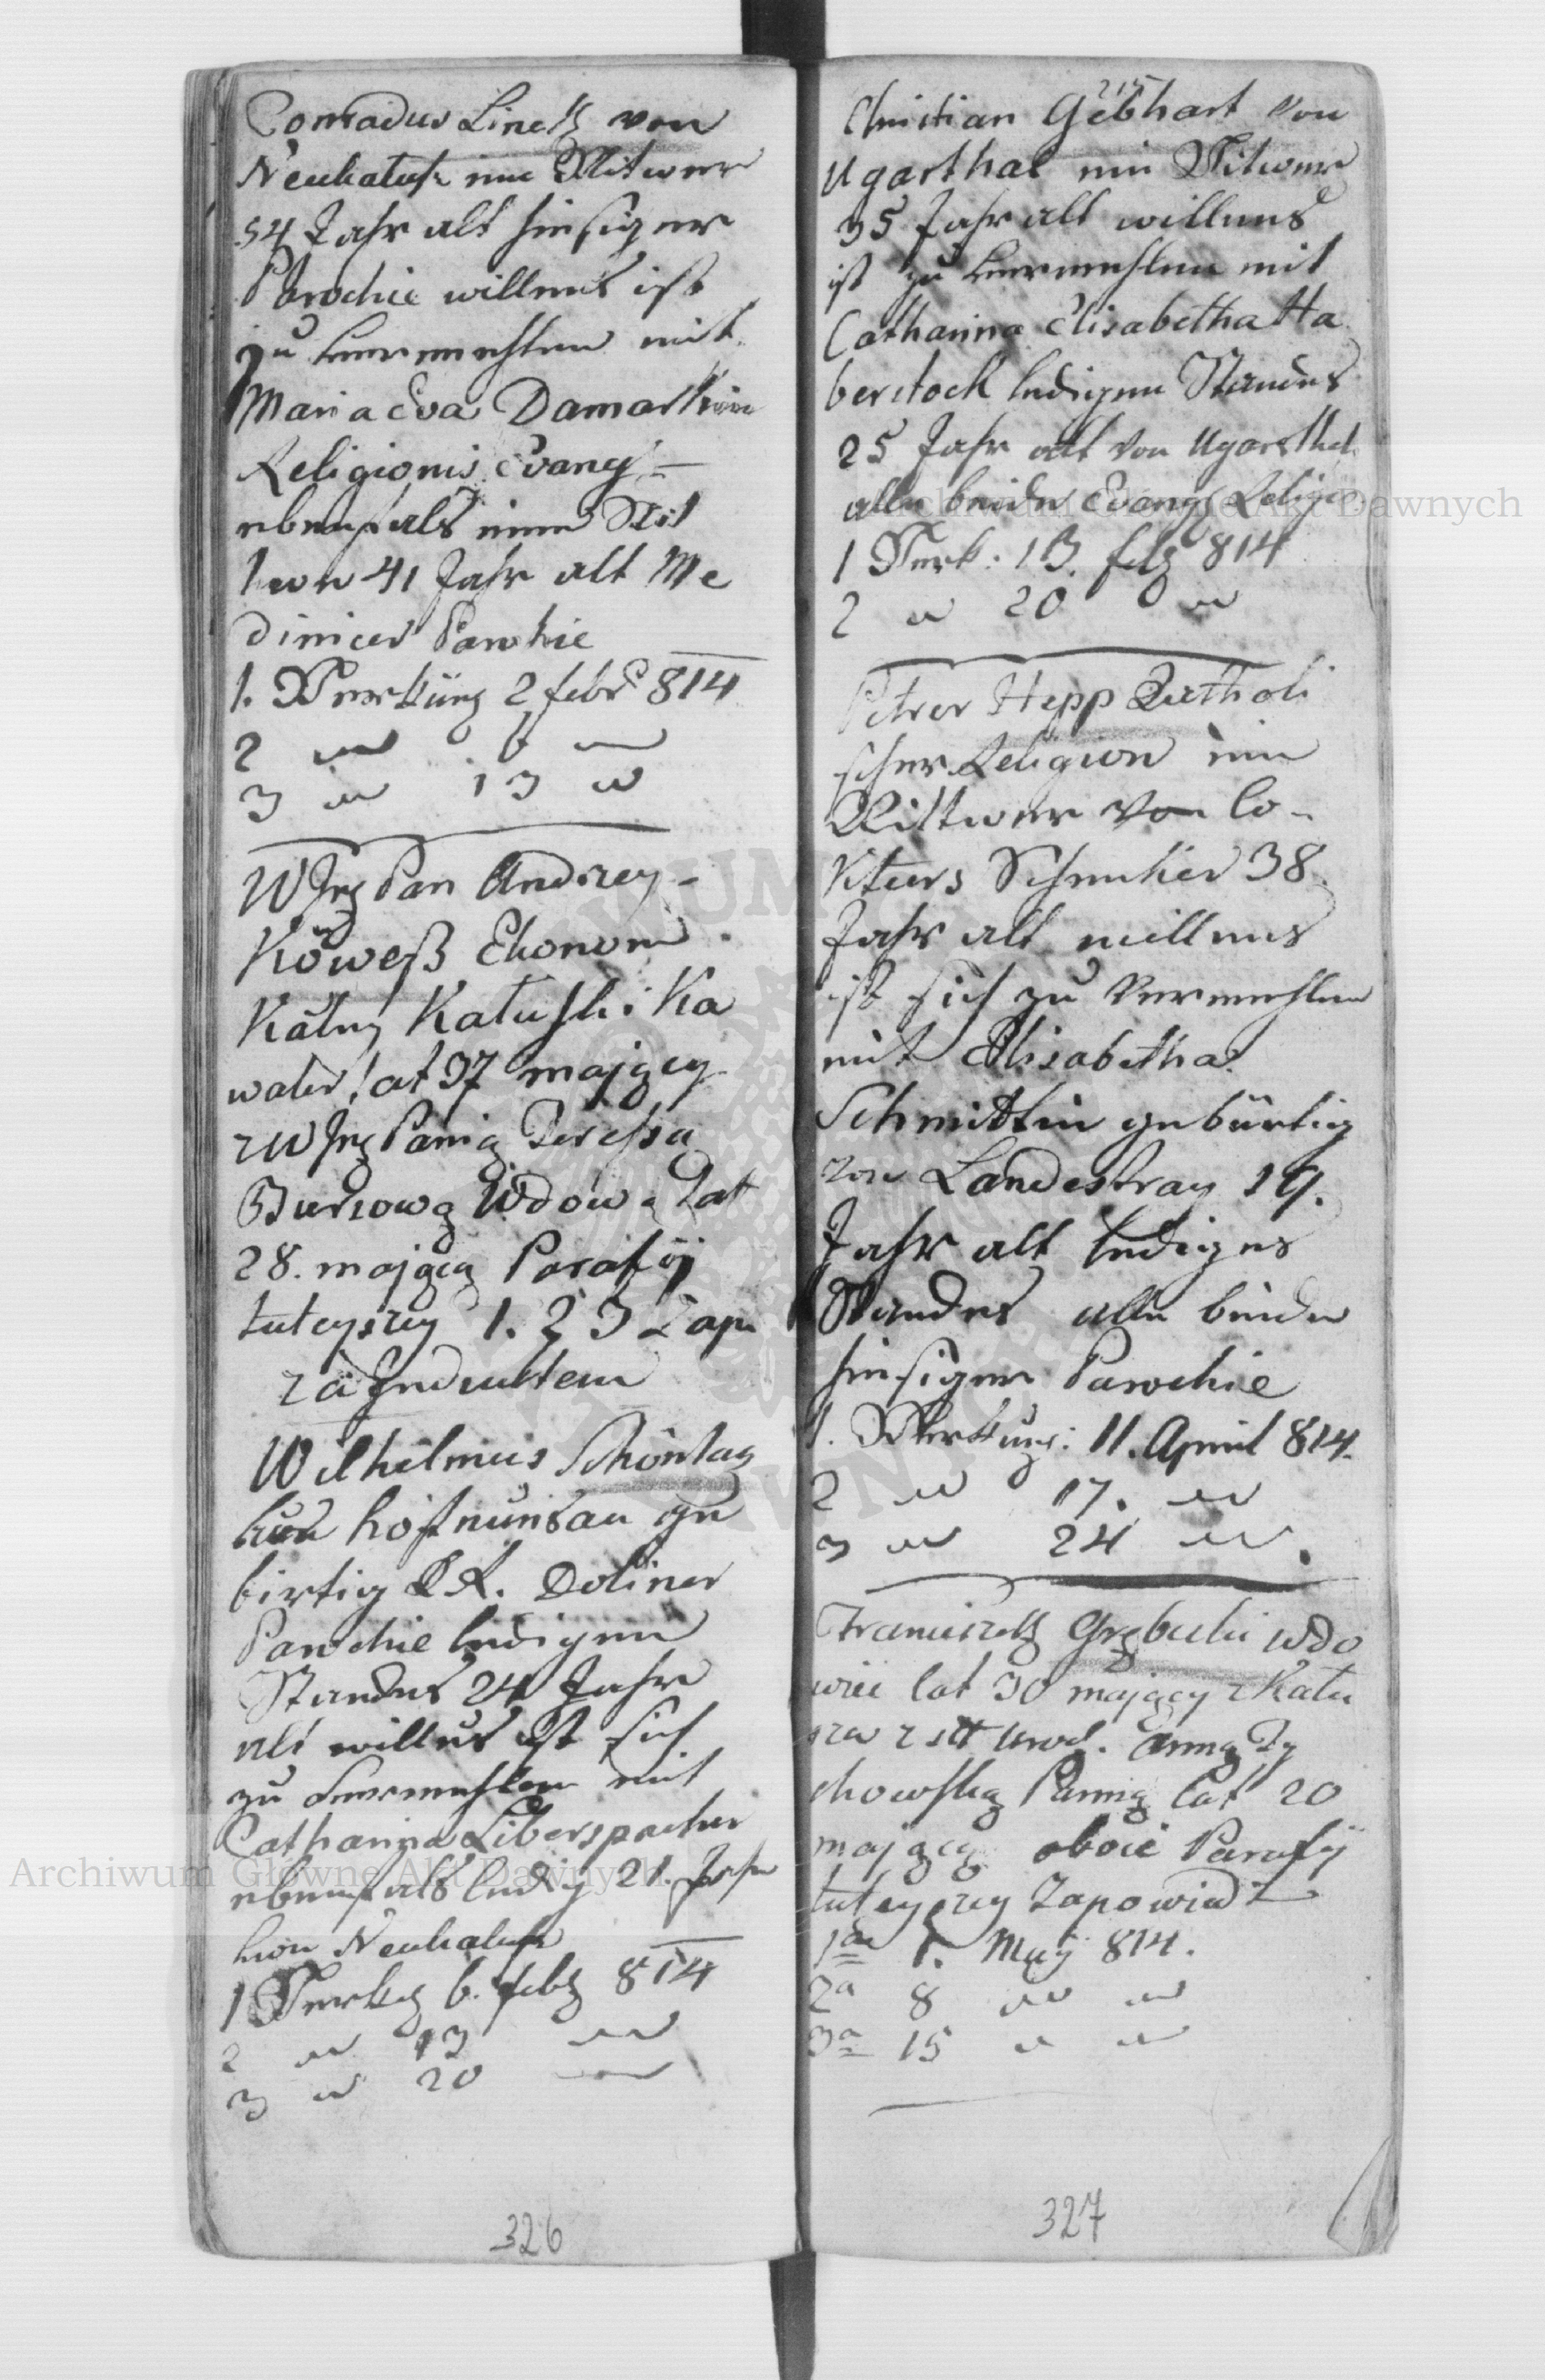 Conradus Linck von
Neukalusz ein Witwer
54 Jahr alt hiesiger
Parochie willens ist
zu vermehlen mit
Maria Eva Damask
Religionis Evang –
ebenfals eine Wit
we 41 Jahr alt Me
dinicer Parochie
1. Verküng 2 febr 814
2 " 6 "
3 " 13 "
WJeg Pan Andrzey –
Köweß Ekonom
Kałuski Ka
waler lat 37 mający
z WJeg Panią Teressą
Bursową Wdową Lat
28. mającą Parafÿ
tuteyszey 1. 2 3 Zap
za Indultem
Wilhelmus Schönhag
von hofnungsau ge
birtig Doliner
Parochie ledigen
Standes 24 Jahr
alt willens ist sich
zu vermehlen mit
Catharina Liberspacher
ebenfals ledig 21. Jahr
von Neukalusz
1 Verkg 6. febr 814
2 " 13 "
3 " 20 "
326
215
Christian Gebhart von
Ugarthal ein Witwer
35 Jahr alt willens
ist zu vermehlen mit
Catharina Elisabetha Ha
berstock ledigen Standes
25 Jahr alt von Ugarsthal
alle beide Evang Religio
1 Verk: 13. feb 814
2 " 20 "
Peter Hepp Catholi
scher Religion ein
Wittwer von lo
Schmiker 38
Jahr alt willens
ist sich zu vermehlen
mit Elisabetha
Schmittin gebürtig
von Landestray 19.
Jahr alt lediges
Standes alle beide
hiesiger Parochie
1. Verkung: 11. April 814.
2 " 17. "
3 " 24 " .
Franciszek Grębecki wdo
wiec lat 30 mający z Kału
sza z Urod. Anną Zy
chowską Panną lat 20
mającą oboie Parafÿ
tuteyszey Zapowiedz
1a 1. Maÿ 814.
2a 8 " "
3a 15 " "
327
Archiwum Główne Akt Dawnych
Archiwum Główne Akt Dawnych